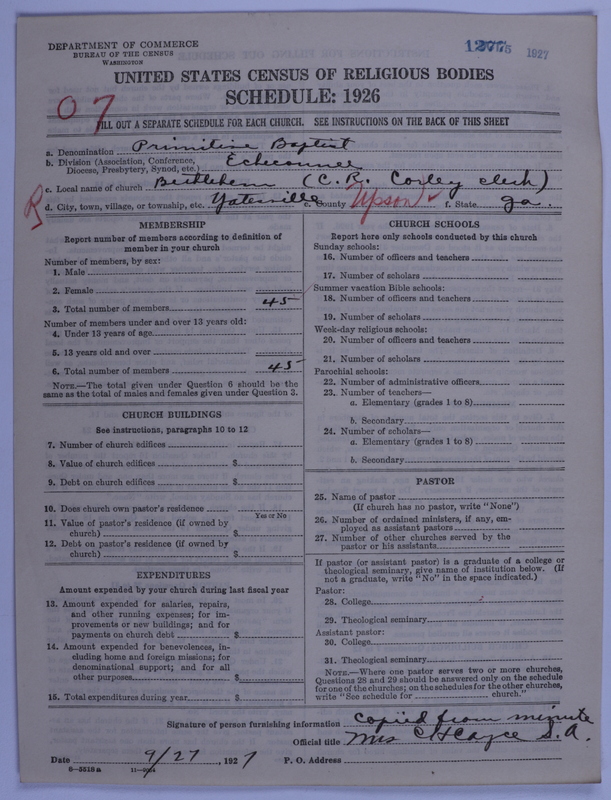 DEPARTMENT OF COMMERCE
BUREAU OF THE CENSUS
WASHINGTON
1927
UNITED STATES CENSUS OF RELIGIOUS BODIES
SCHEDULE: 1926
07
FILL OUT A SEPARATE SCHEDULE FOR EACH CHURCH. SEE INSTRUCTIONS ON THE BACK OF THIS SHEET
a. Denomination Primitive Baptist
b. Division (Association, Conference, Diocese, Presbytery, Synod, etc.) Echeconnee
c. Local name of church Bethlehem (C. R. Corley clerk)
R
d. City, town, village, or township, etc. Yatesville e. County Upson ✓ f. State Ga.
MEMBERSHIP
Report number of members according to definition of
member in your church
Number of members, by sex:
1. Male
2. Female
3. Total number of members 45
Number of members under and over 13 years old:
4. Under 13 years of age
5. 13 years old and over
6. Total number of members 45
NOTE.—The total given under Question 6 should be the
same as the total of males and females given under Question 3.
CHURCH BUILDINGS
See instructions, paragraphs 10 to 12
7. Number of church edifices
8. Value of church edifices $
9. Debt on church edifices $
10. Does church own pastor's residence
Yes or No
11. Value of pastor's residence (if owned by
church) $
12. Debt on pastor's residence (if owned by
church) $
EXPENDITURES
Amount expended by your church during last fiscal year
13. Amount expended for salaries, repairs,
and other running expenses; for im-
provements or new buildings; and for
payments on church debt $
14. Amount expended for benevolences, in-
cluding home and foreign missions; for
denominational support; and for all
other purposes $
15. Total expenditures during year $
CHURCH SCHOOLS
Report here only schools conducted by this church
Sunday schools:
16. Number of officers and teachers
17. Number of scholars
Summer vacation Bible schools:
18. Number of officers and teachers
19. Number of scholars
Week-day religious schools:
20. Number of officers and teachers
21. Number of scholars
Parochial schools:
22. Number of administrative officers
23. Number of teachers—
a. Elementary (grades 1 to 8)
b. Secondary
24. Number of scholars—
a. Elementary (grades 1 to 8)
b. Secondary
PASTOR
25. Name of pastor
(If church has no pastor, write "None")
26. Number of ordained ministers, if any, em-
ployed as assistant pastors
27. Number of other churches served by the
pastor or his assistants
If pastor (or assistant pastor) is a graduate of a college or
theological seminary, give name of institution below. (If
not a graduate, write "No" in the space indicated.)
Pastor:
28. College
29. Theological seminary
Assistant pastor:
30. College
31. Theological seminary
NOTE.—Where one pastor serves two or more churches,
Questions 28 and 29 should be answered only on the schedule
for one of the churches; on the schedules for the other churches,
write "See schedule for church."
Signature of person furnishing information copied from minute
Official title Mrs C H Cayce S. A.
Date 9/27, 1927 P. O. Address
8-5518a